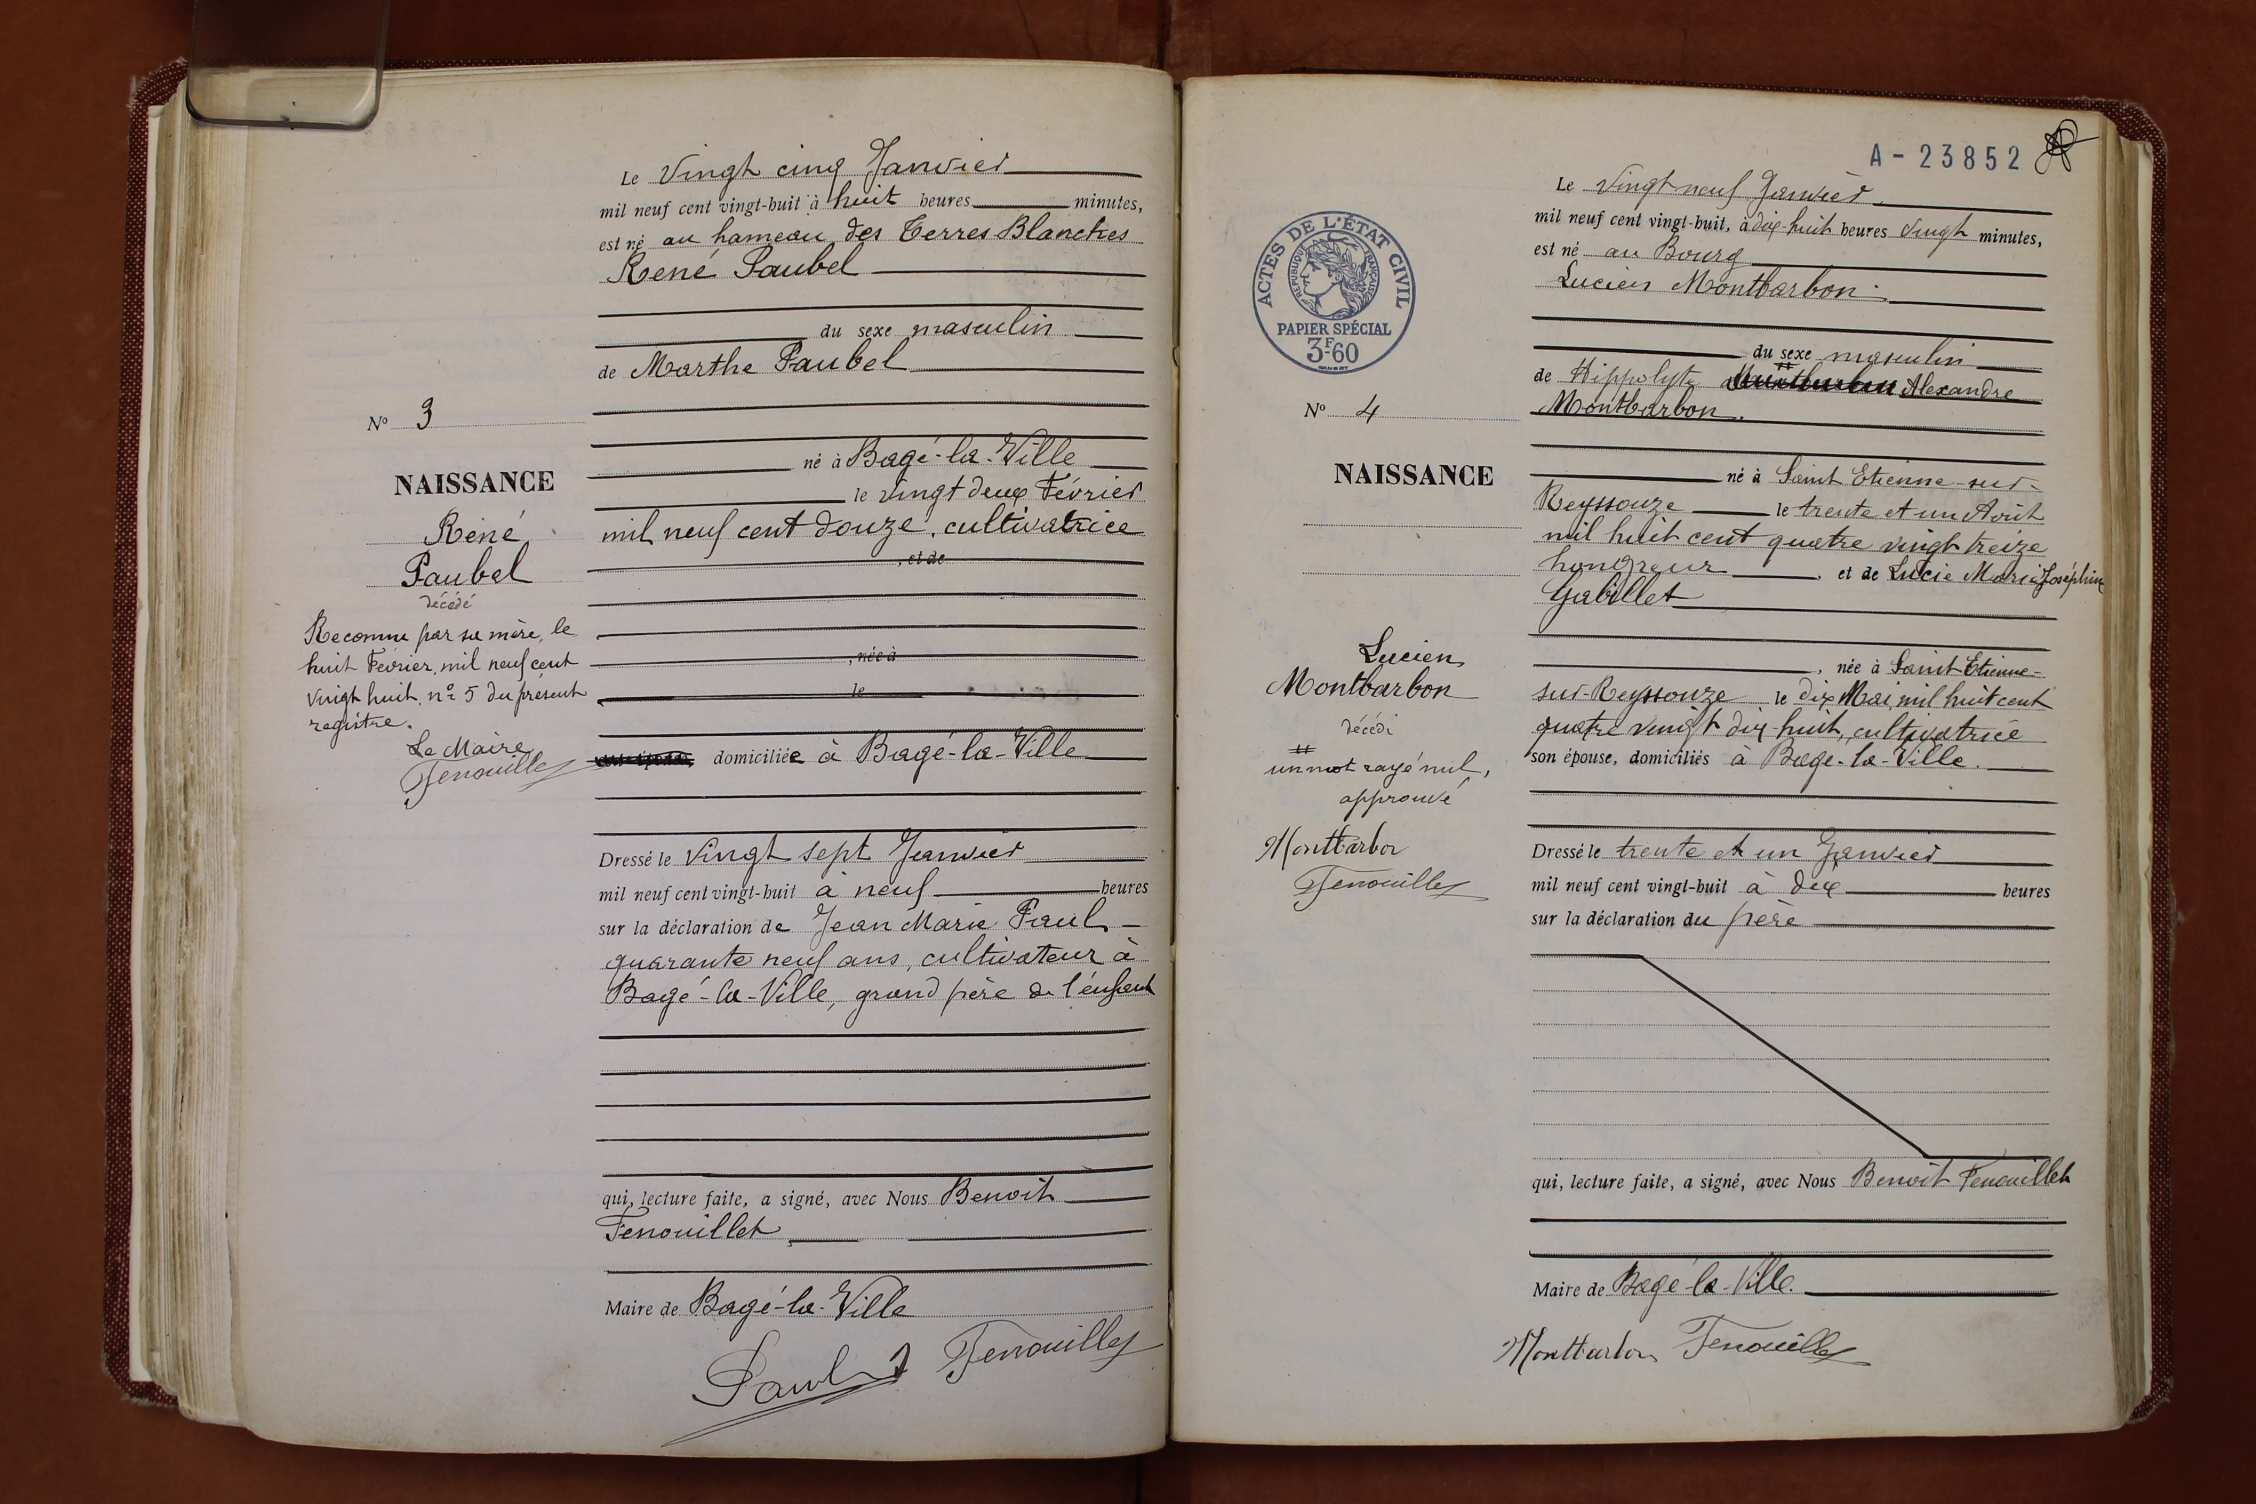 Le vingt cinq Janvier
mil neuf cent vingt-huit à huit heures minutes,
est né au hameau des Terres Blanches
René Paubel
du sexe masculin
de Marthe Paubel
né à Bagé-la-Ville
le vingt deux Février
mil neuf cent douze, cultivatrice
, et de
, née à
le
domiciliée à Bagé-la-Ville
Dressé le vingt sept Janvier
mil neuf cent vingt-huit à neuf heures
sur la déclaration de Jean Marie Paul
quarante neuf ans, cultivateur à
Bagé-la-Ville, grand père de l'enfant
qui, lecture faite, a signé, avec Nous Benoit
Fenouillet
Maire de Bagé-la-Ville
Fenouillet
No 3
NAISSANCE
René
Paubel
décédé
Reconnu par sa mère, le
huit Février mil neuf cent
vingt huit no 5 du présent
registre.
Le Maire
Fenouillet
A - 23852
ACTES DE L'ÉTAT CIVIL
RÉPUBLIQUE FRANÇAISE
PAPIER SPÉCIAL
3F60
No 4
NAISSANCE
Lucien
Montbarbon
décédé
un mot rayé nul,
approuvé
Montbarbon
Fenouillet
Le vingt neuf Janvier
mil neuf cent vingt-huit, à dix-huit heures vingt minutes,
est né au Bourg
Lucien Montbarbon
du sexe masculin
de Hippolyte Alexandre
Montbarbon.
né à Saint Etienne-sur-
Reyssouze le trente et un Août
mil huit cent quatre vingt treize
hongreur, et de Lucie Marie Joséphine
Gabillet
, née à Saint Etienne-
sur-Reyssouze le dix Mai mil huit cent
quatre vingt dix-huit, cultivatrice
son épouse, domiciliés à Bagé-la-Ville.
Dressé le trente et un Janvier
mil neuf cent vingt-huit à dix heures
sur la déclaration du père
qui, lecture faite, a signé, avec Nous Benoit Fenouillet
Maire de Bagé-la-Ville.
Montbarbon Fenouillet